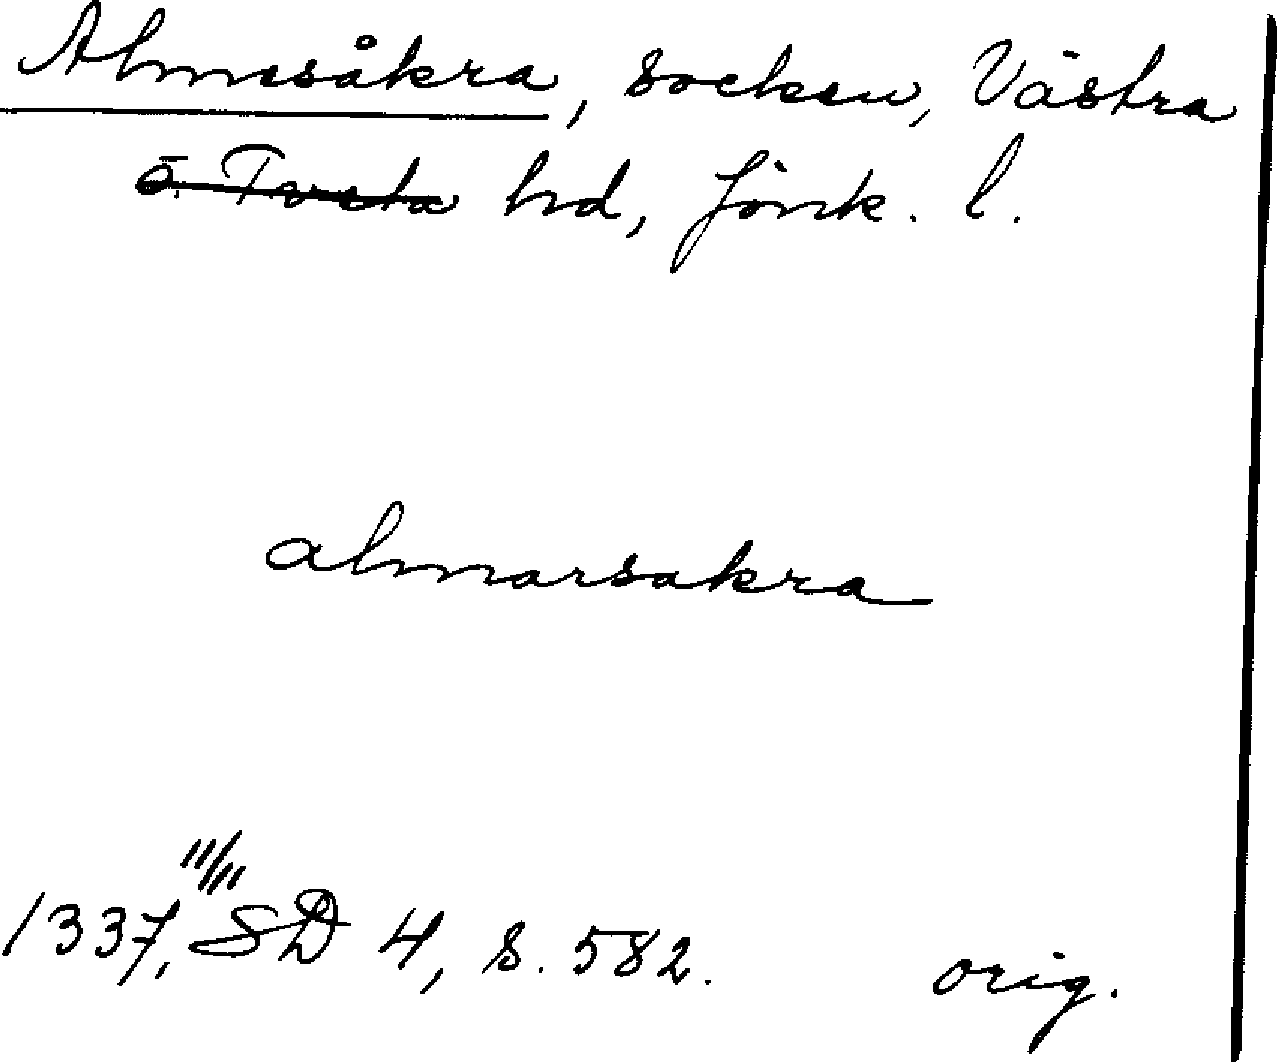 Almesåkra, socken, Västra
ö. Tveta hd, Jönk. l.
almarsakra
11/11
1337, SD 4, s. 582. orig.